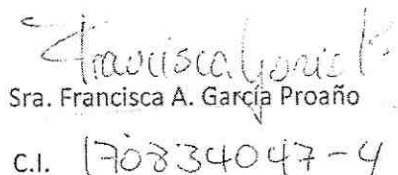 Francisca Garcia P.
Sra. Francisca A. García Proaño
C.I. 170834047-4